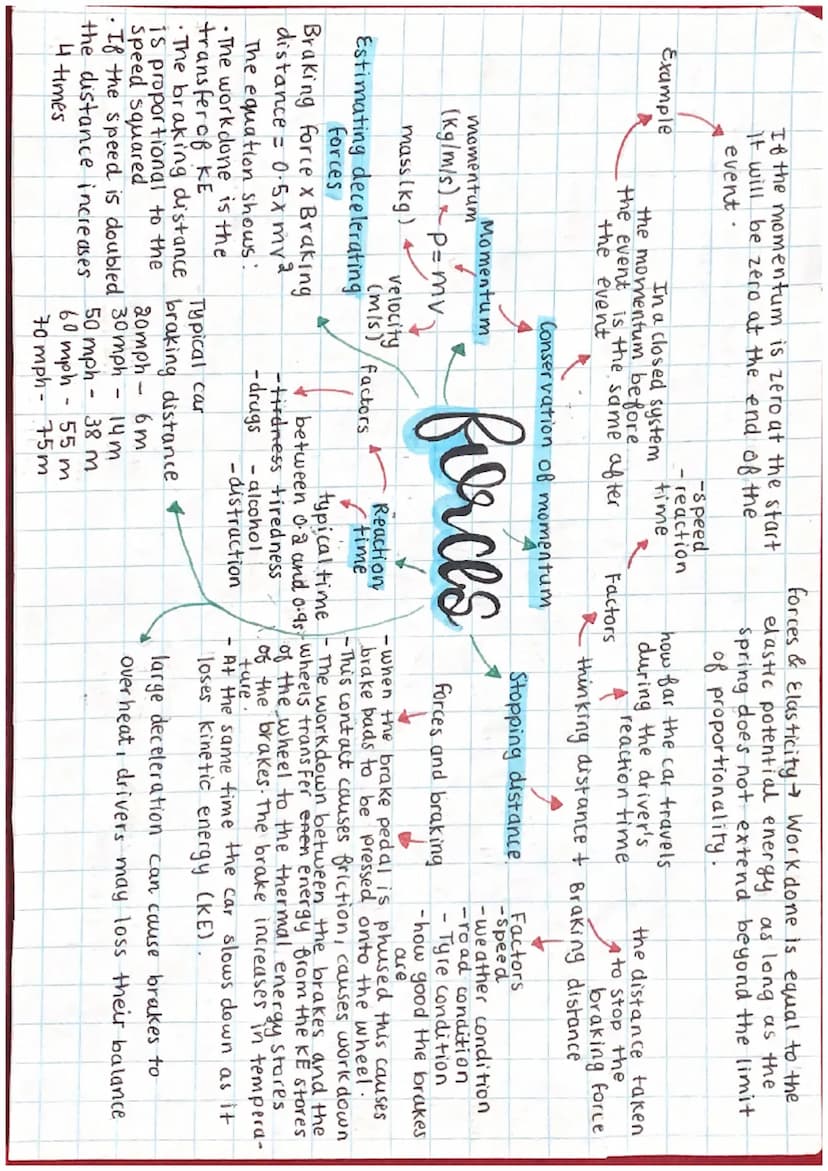 If the momentum is zero at the start
it will be zero at the end of the
event.
Example
In a closed system
the momentum before
the event is the same after
the event
Conservation of momentum
Momentum
p = mv
momentum
(kg/m/s)
mass (kg)
velocity
(m/s)
Estimating decelerating
forces
Braking force x Braking
distance = 0.5 x mv²
The equation shows:
• The workdone is the
transfer of KE
• The braking distance
is proportional to the
speed squared
• If the speed is doubled
the distance increases
4 times
forces
Reaction
time
factors
typical time
between 0.2 and 0.9s
- tirdness tiredness
- drugs - alcohol
- distraction
Typical car
braking distance
20mph - 6m
30mph - 14m
50 mph - 38 m
60 mph - 55 m
70 mph - 75m
forces & Elasticity → Work done is equal to the
elastic potential energy as long as the
spring does not extend beyond the limit
of proportionality.
- speed
- reaction
time
Factors
how far the car travels
during the driver's
reaction time
the distance taken
to stop the
braking force
thinking distance + Braking distance
Stopping distance
Factors
- speed
- weather condition
- road condition
- Tyre condition
- how good the brakes
are
forces and braking
- when the brake pedal is phused this causes
brake pads to be pressed onto the wheel.
- This contact causes friction, causes work down
- The workdown between the brakes and the
wheels transfer enen energy from the KE stores
of the wheel to the thermal energy stores
of the brakes. The brake increases in tempera-
ture.
- At the same time the car slows down as it
loses kinetic energy (KE).
large deceleration can cause brakes to
overheat, drivers may loss their balance